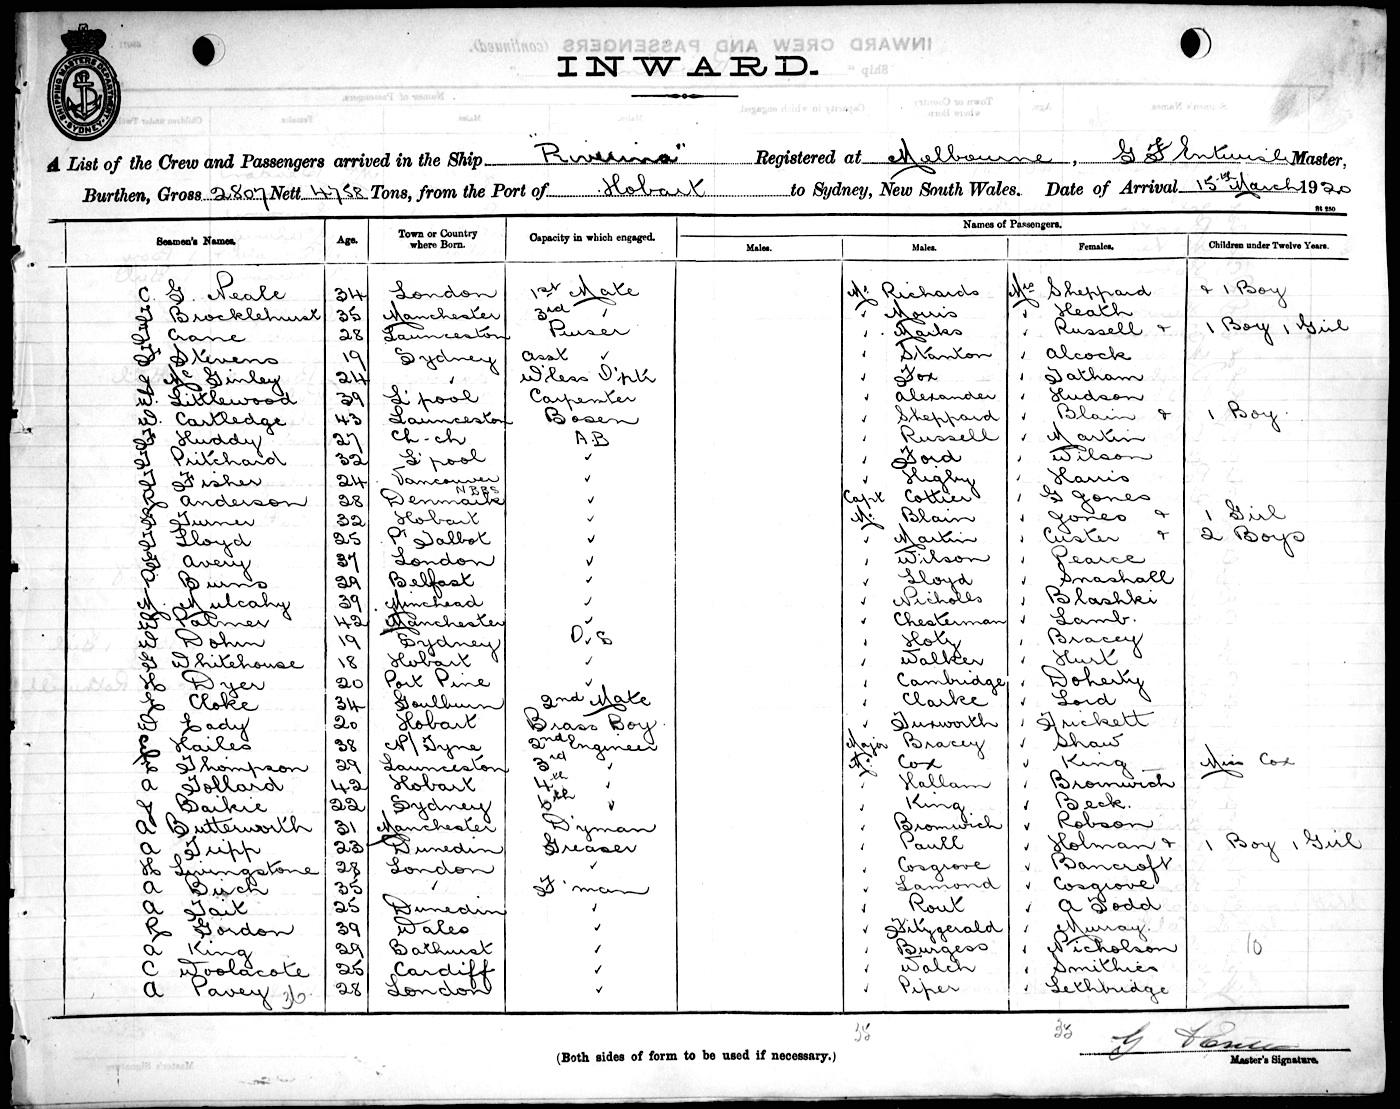 INWARD.
SHIPPING MASTERS DEPARTMENT SYDNEY
A List of the Crew and Passengers arrived in the Ship "Riverina" Registered at Melbourne, G F Entwisle Master,
Burthen, Gross 2807 Nett 4758 Tons, from the Port of Hobart to Sydney, New South Wales. Date of Arrival 15th March 1920
Seamen's Names. Age. Town or Country where Born. Capacity in which engaged. Names of Passengers.
Males. Males. Females. Children under Twelve Years.
C. G. Neale 34 London 1st Mate Mr Richards Mrs Sheppard & 1 Boy
Brocklehurst 35 Manchester 3rd " Morris Heath
Crane 28 Launceston Purser Marks Russell & 1 Boy 1 Girl
Stevens 19 Sydney Asst Stanton Alcock
McGinley 24 W'less O'ptr Fox Tatham
Littlewood 39 L'pool Carpenter Alexander Hudson
Cartledge 43 Launceston Bosen Sheppard Blain & 1 Boy
Huddy 27 Ch-ch A.B Russell Martin
Pritchard 32 L'pool Ford Wilson
Fisher 24 Vancouver Higby Harris
Anderson 28 Denmark NBBS Capt Cottier G Jones
Turner 32 Hobart Mr Blain Jones & 1 Girl
Lloyd 25 Pt Talbot Martin Custer & 2 Boys
Avery 37 London Wilson Pearce
Burns 29 Belfast Lloyd Snashall
Mulcahy 39 Minehead Nicholls Blashki
Palmer 42 Manchester Chesterman Lamb.
Dohm 19 Sydney O.S Hoty Bracey
Whitehouse 18 Hobart Walker Hurt
Dyer 20 Port Pirie Cambridge Doherty
Cloke 34 Goulburn 2nd Mate Clarke Lord
Lady 20 Hobart Brass Boy Tuxworth Tuckett
Hailes 38 N/Tyne 2nd Engineer Major Bracey Shaw
Thompson 29 Launceston 3rd Mr Cox King Miss Cox
a Tollard 42 Hobart 4th Hallam Bromwich
Baikie 22 Sydney 5th King Beck.
a Butterworth 31 Manchester D'yman Bromwich Robson
a Tripp 23 Dunedin Greaser Paull Holman & 1 Boy 1 Girl
H Livingstone 28 London Cosgrove Bancroft
a Birch 35 F'man Lamond Cosgrove
a Tait 25 Dunedin Rout A Todd
Gordon 39 Wales Fitzgerald Murray.
a King 29 Bathurst Burgess Nicholson 10
C Woolacote 25 Cardiff Walch Smithies
a Pavey 36 28 London Piper Lethbridge
35 35
(Both sides of form to be used if necessary.)
Master's Signature.